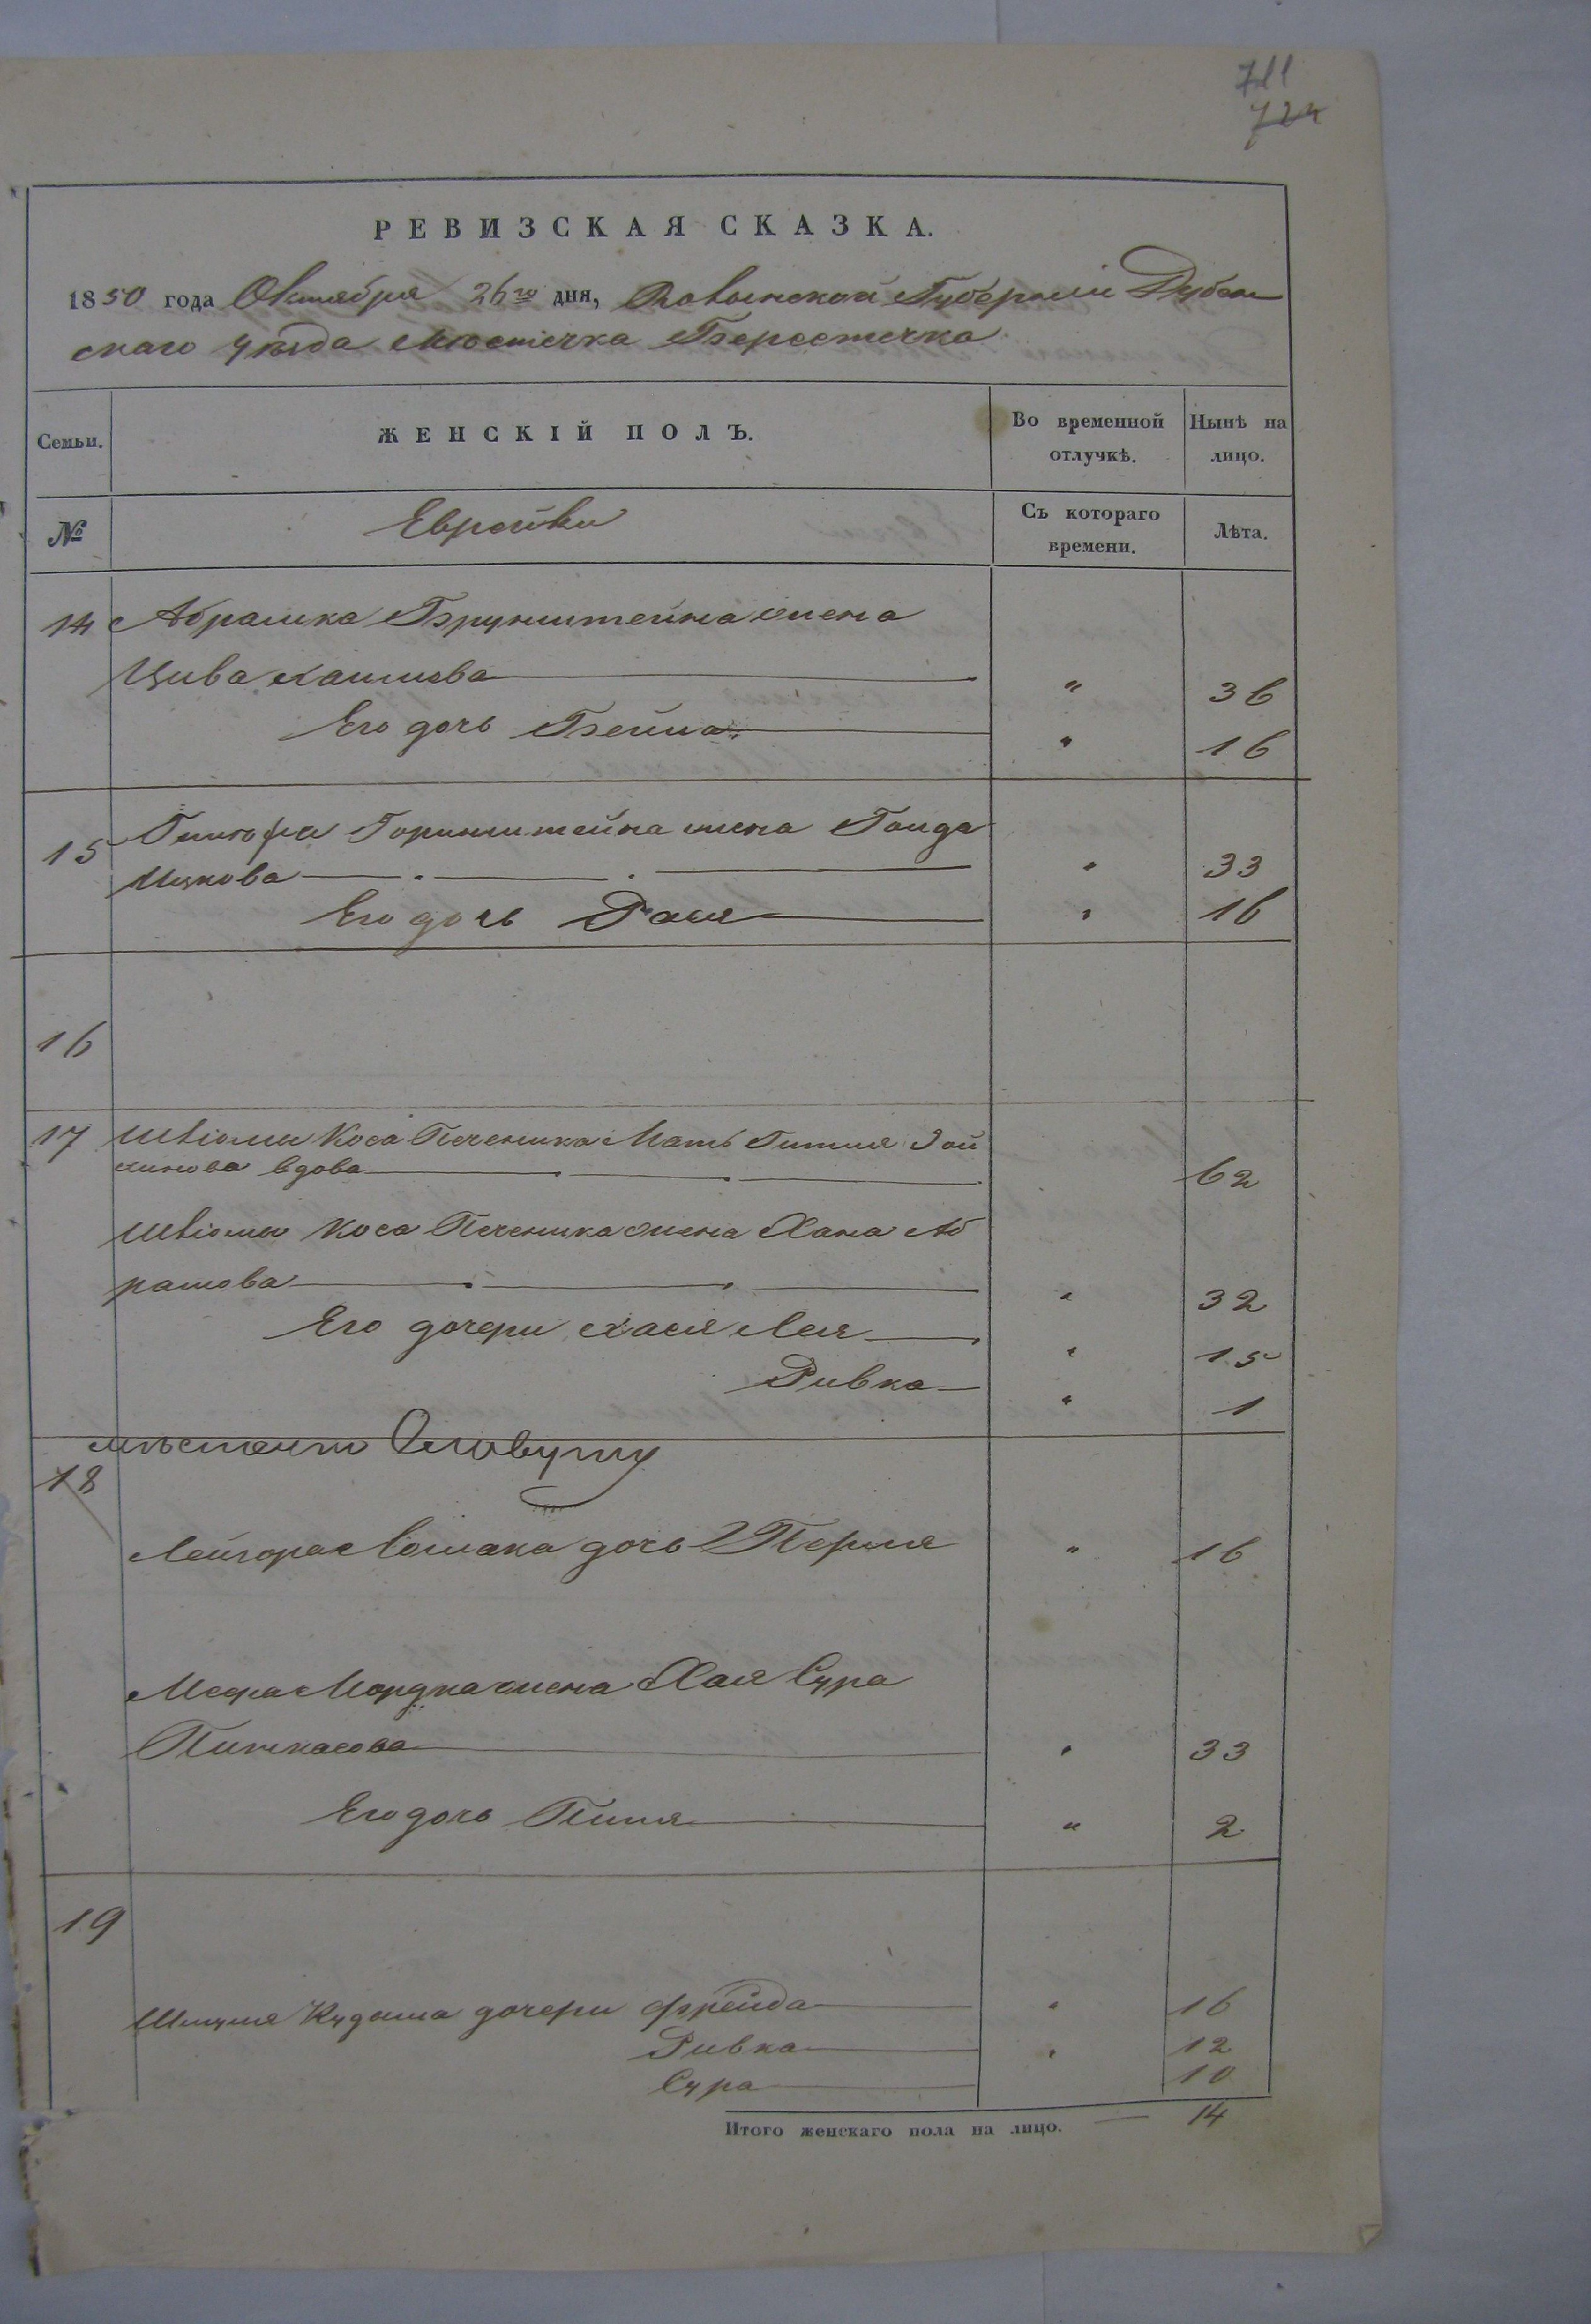 711
724
РЕВИЗСКАЯ СКАЗКА.
1850 года Октября 26го дня, Волынской Губерніи Дубен
скаго уѣзда Мѣстечка Берестечка
Семьи.
ЖЕНСКІЙ ПОЛЪ.
Во временной отлучкѣ.
Нынѣ на лицо.
№
Еврейки
Съ котораго времени.
Лѣта.
14 Абрамка Брунштейна жена
Цива Хаимова " 36
Его дочь Бейла " 16
15 Горинштейна жена Голда
Ицкова " 33
Его дочь Рася " 16
16
17 Коса Печеника Мать Гитля Зой
вдова 62
Коса Печеника жена Хана Аб
рамова " 32
Его дочери Хася Лея " 15
Ривка " 1
18
Лейзора дочь Перля " 16
Мордка жена Хая Сура
Пинкасова " 33
Его дочь " 2
19
Шмуля Кудыша дочери Фрейда " 16
Ривка " 12
Сура 10
Итого женскаго пола на лицо. — 14